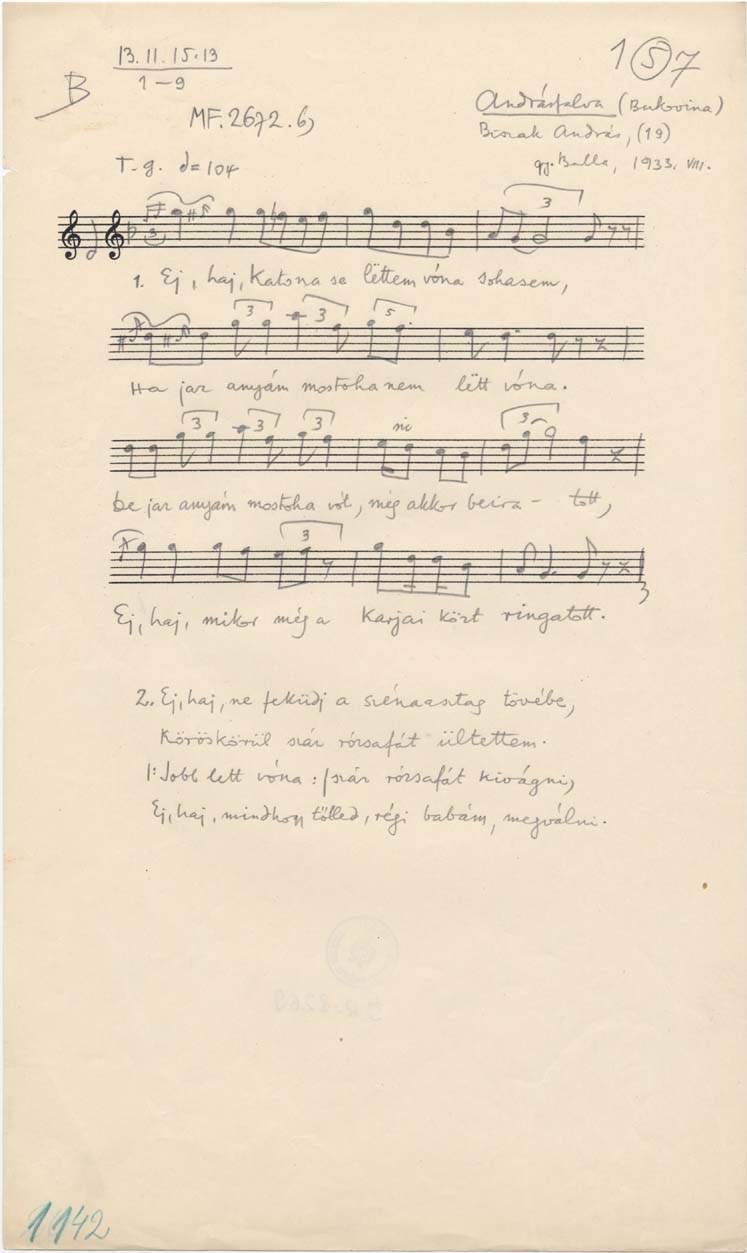 13. 11. 15. 13
1 – 9
1 5 7
B
MF. 2672. b)
Andrásfalva (Bukovina)
András, (19)
gy. Balla, 1933. VIII.
T-g. = 104
3
3
1. Ej, haj, Katona se lëttem vóna sohasem,
3 3 5
Ha jar anyám mostoha nem lëtt vóna.
3 3 3 3
ni
De jar anyám mostoha vót, még akkor beira – tott,
3
Ej, haj, mikor még a karjai közt ringatott.
2. Ej, haj, ne feküdj a szénaasztag tövébe,
Köröskörül szár rózsafát ültettem.
|: Jobb lett vóna :| szár rózsafát kivágni,
Ej, haj, mindhogy tőlled, régi babám, megválni.
1142